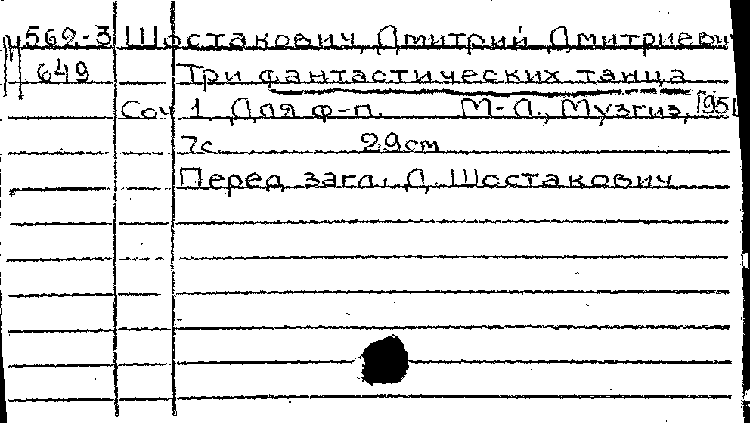 м569-3 Шостакович, Дмитрий Дмитриевич
649 Три фантастических танца
Соч 1. Для ф-п. М-Л., Музгиз, 195
7с. 29см
Перед загл.: Д. Шостакович